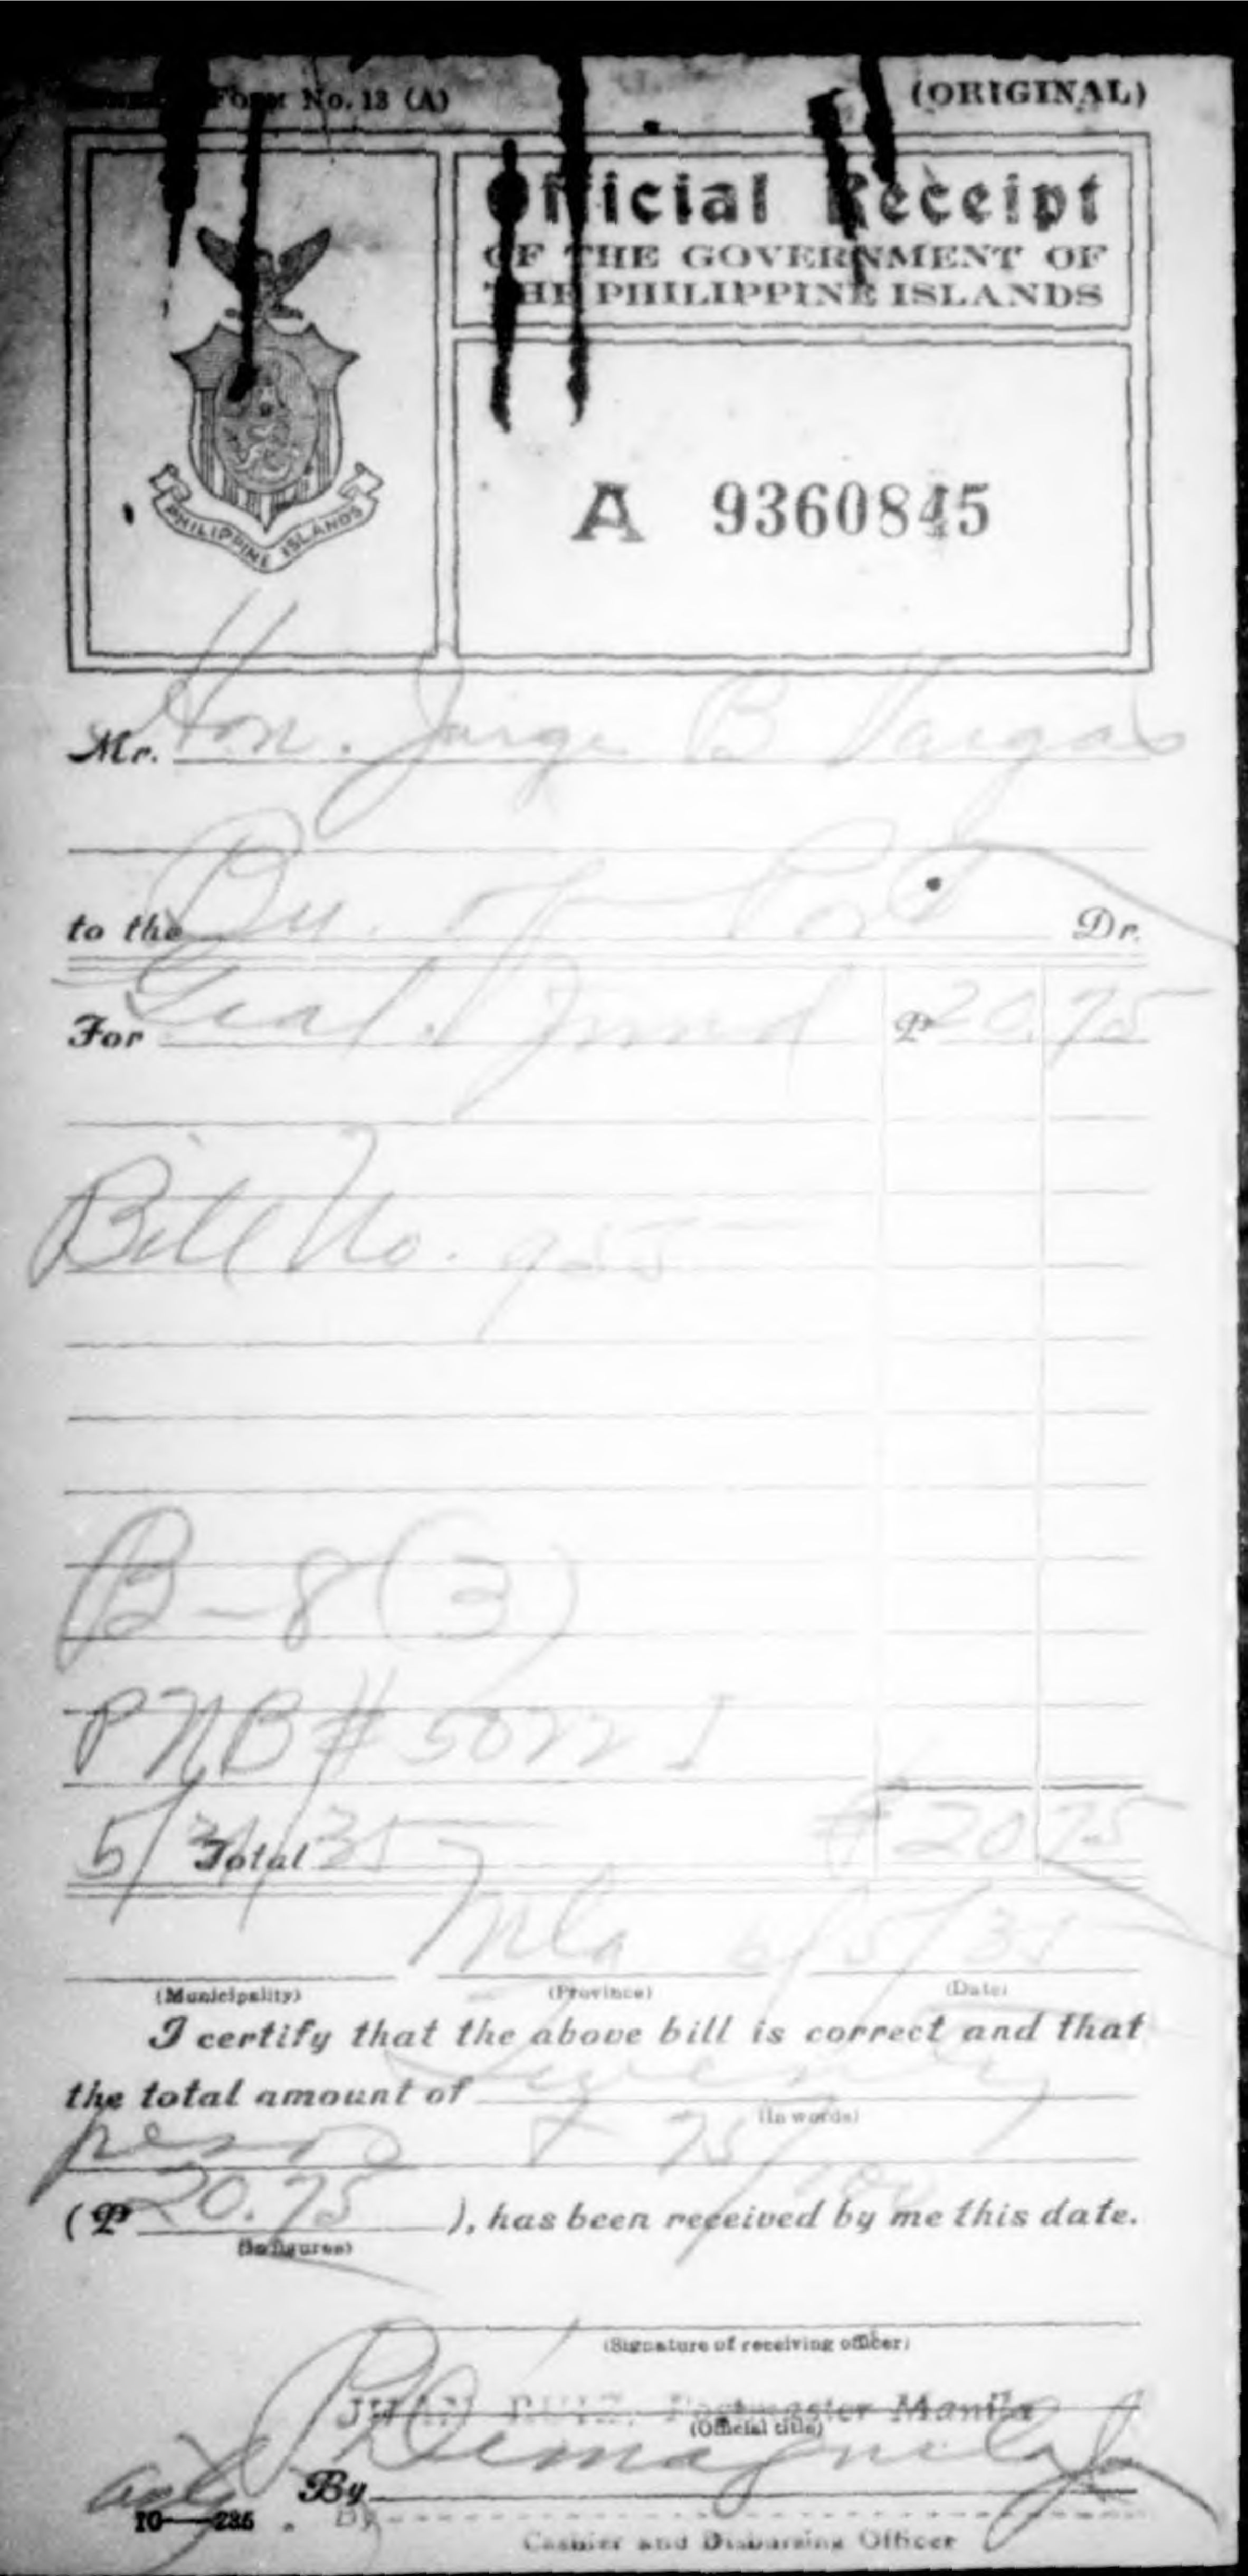 Form No. 13 (A)
(ORIGINAL)
Official Receipt
OF THE GOVERNMENT OF
THE PHILIPPINE ISLANDS
PHILIPPINE ISLANDS
A 9360845
Mr. Hon. Jorge B Vargas
to the Bu. of Dr.
For Genl. Fund ₱ 20.75
Bill No. 955
B-8 (3)
PNB # 50221
5/31/35
Total ₱ 20 75
Mla 6/5/35
(Municipality) (Province) (Date)
I certify that the above bill is correct and that
the total amount of Twenty
(In words)
pesos & 75/100
(₱ 20.75 ), has been received by me this date.
(In figures)
(Signature of receiving officer)
JUAN RUIZ, Postmaster Manila
(Official title)
By
10—236
By
Cashier and Disbursing Officer